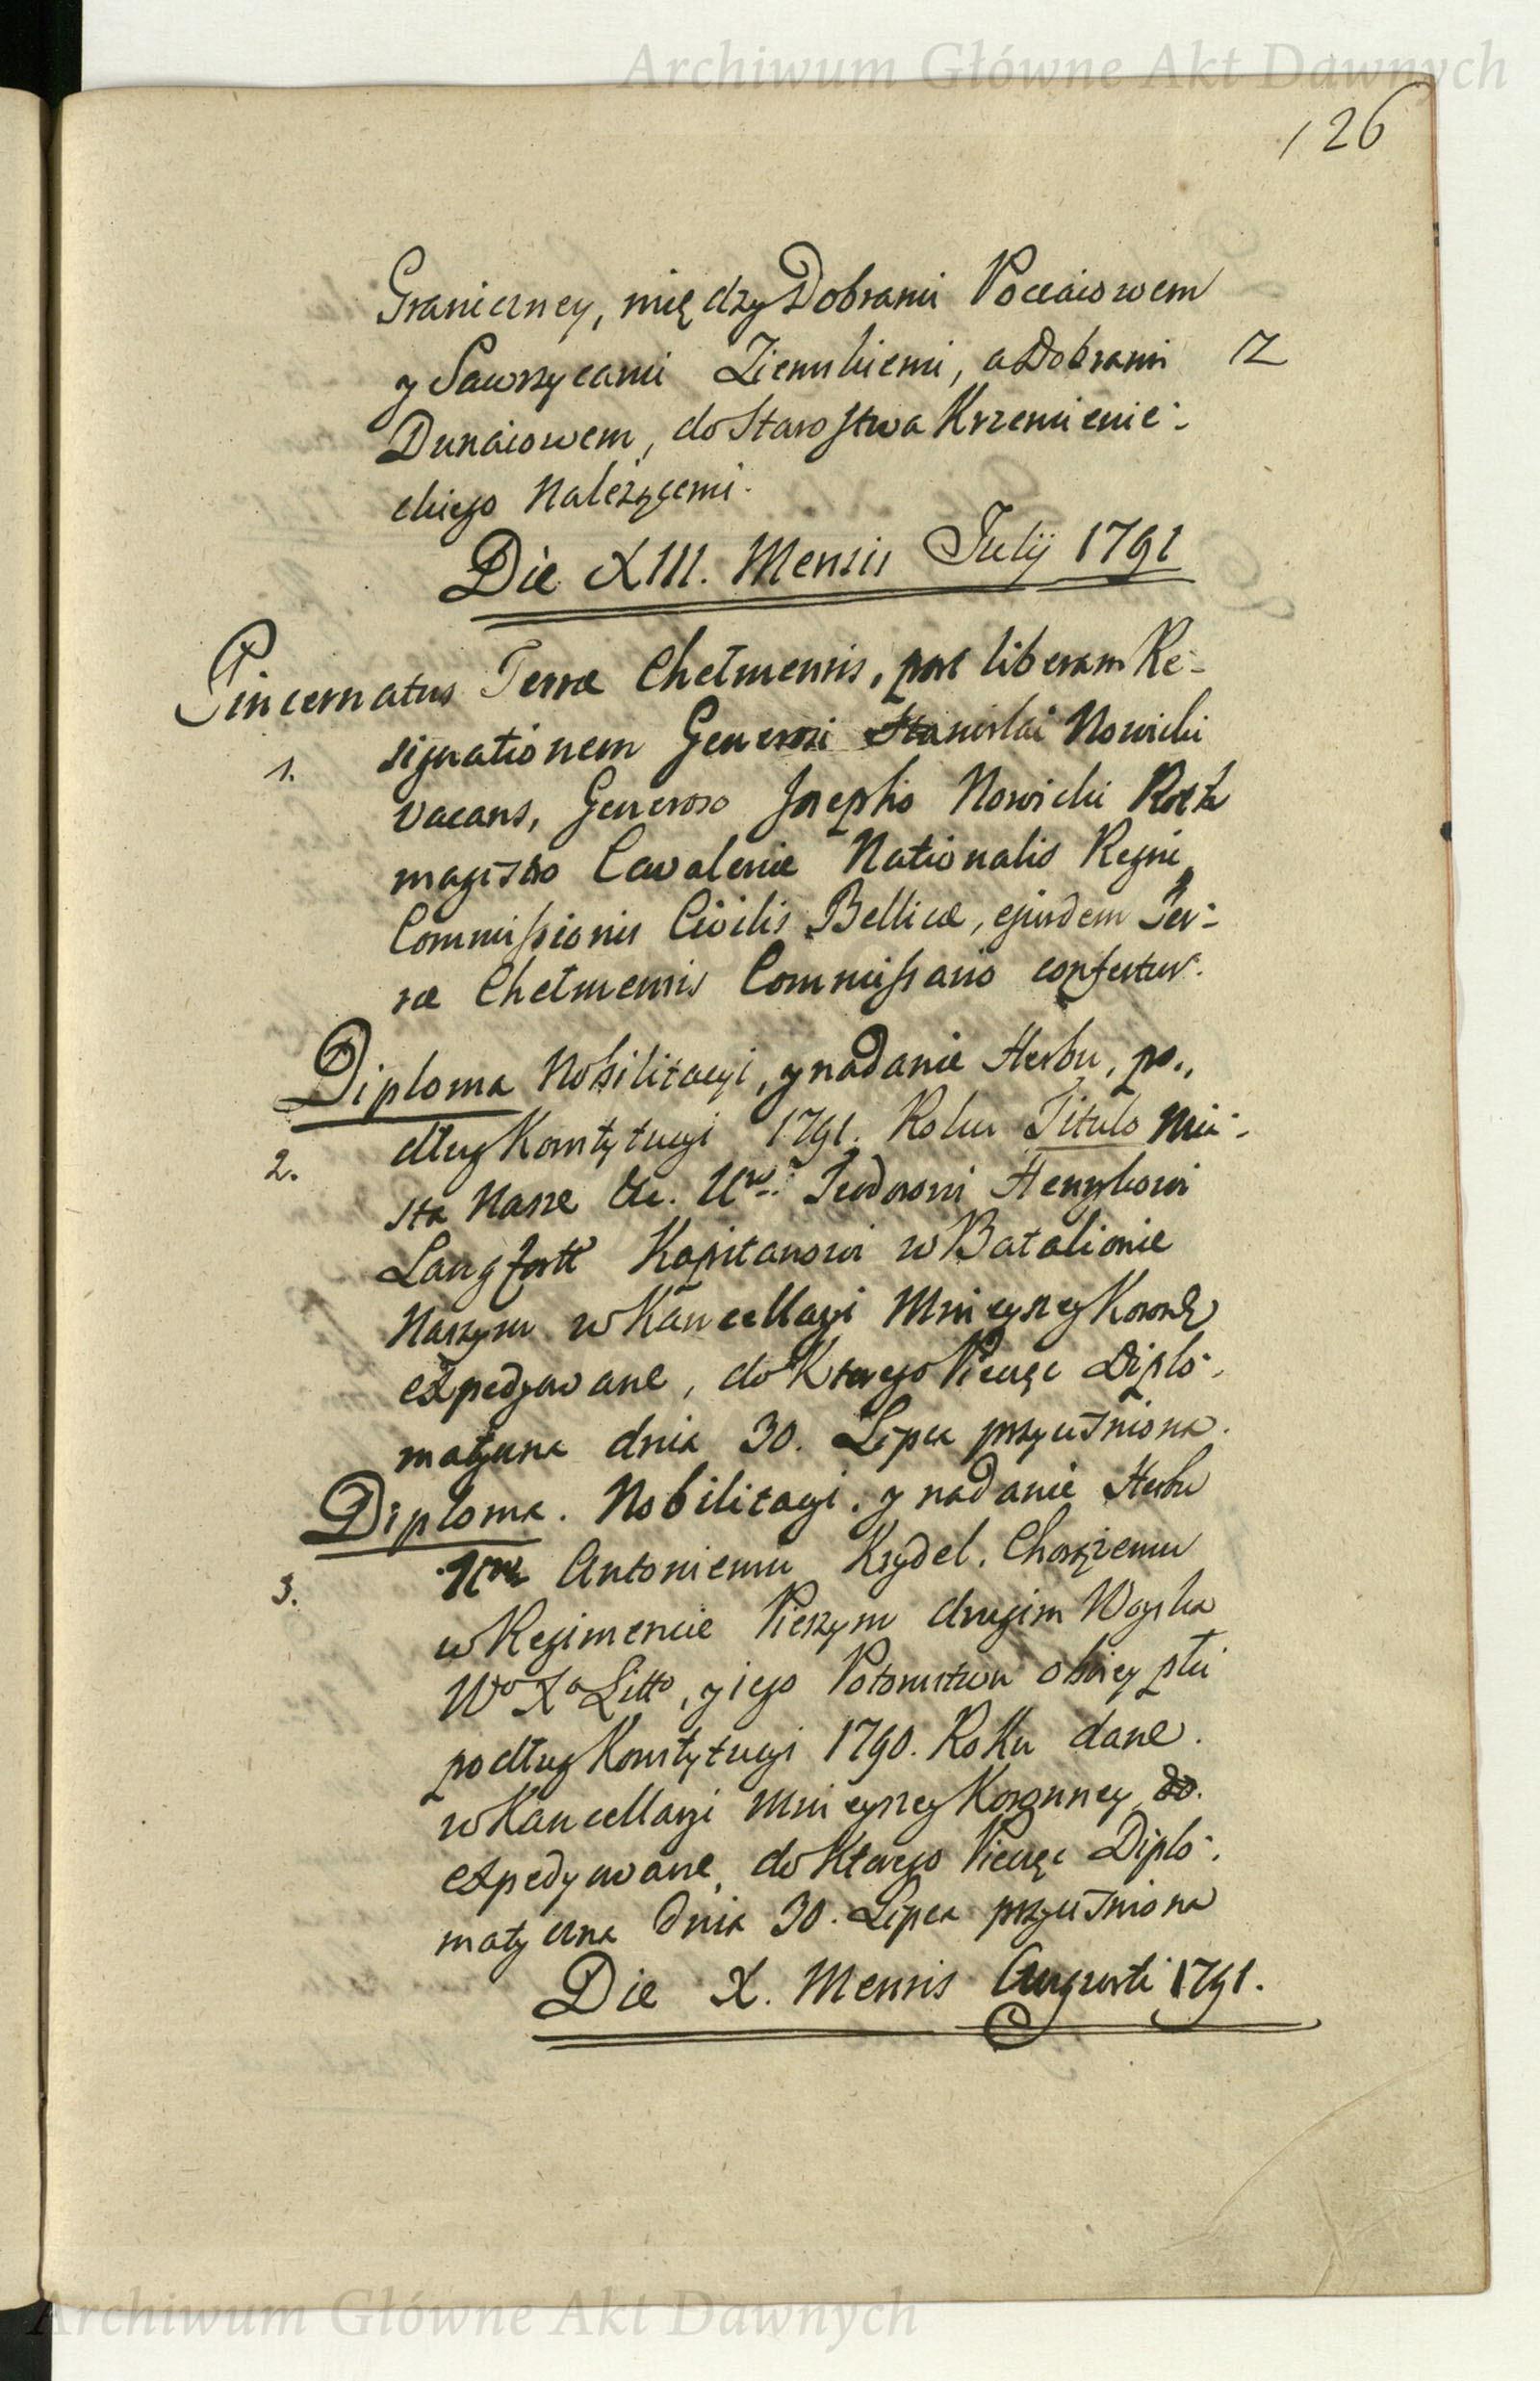 Archiwum Główne Akt Dawnych
126
Graniczney, między Dobrami Poczaiowem
y Sawrzycami Ziemskiemi, a Dobrami z
Dunaiowem, do Starostwa Krzemienie-
ckiego Należącemi.
Die XIII. Mensis Julij 1791
Pincernatus Terræ Chełmensis, post liberam Re-
1. signationem Generosi Stanislai Nowicki
vacans, Generoso Josepho Nowicki Rott
magistro Cavaleriæ Nationalis Regni,
Commissionis Civilis Bellicæ, ejusdem Ter-
ræ Chełmensis Commissario confertur.
Diploma Nobilitacyi, y nadanie Herbu, po.,
2. dług Konstytucyi 1791. Roku Titulo Mia-
sta Nasze &c. Uro. Teodorowi Henrykowi
Langfortt Kapitanowi w Batalionie
Naszym w Kancellaryi Mnieyszey Koronê
expedyowane, do Ktorego Pieczęc Diplo-
matyczna dnia 30. Lipca przycisniona.
Diploma. Nobilitacyi. y nadanie Herbu
3. Uro Antoniemu Krydel. Chorążemu
w Regimencie Pieszym drugim Woyska
Wo Xo Litto, y iego Potomstwu oboiey płci
podług Konstytucyi 1790. Roku dane.
w Kancellaryi Mnieyszey Koronney
expedyowane, do Ktorego Pieczęc Diplo-
matyczna Dnia 30. Lipca przycisniona
Die X. Mensis Augusti 1791.
Archiwum Główne Akt Dawnych